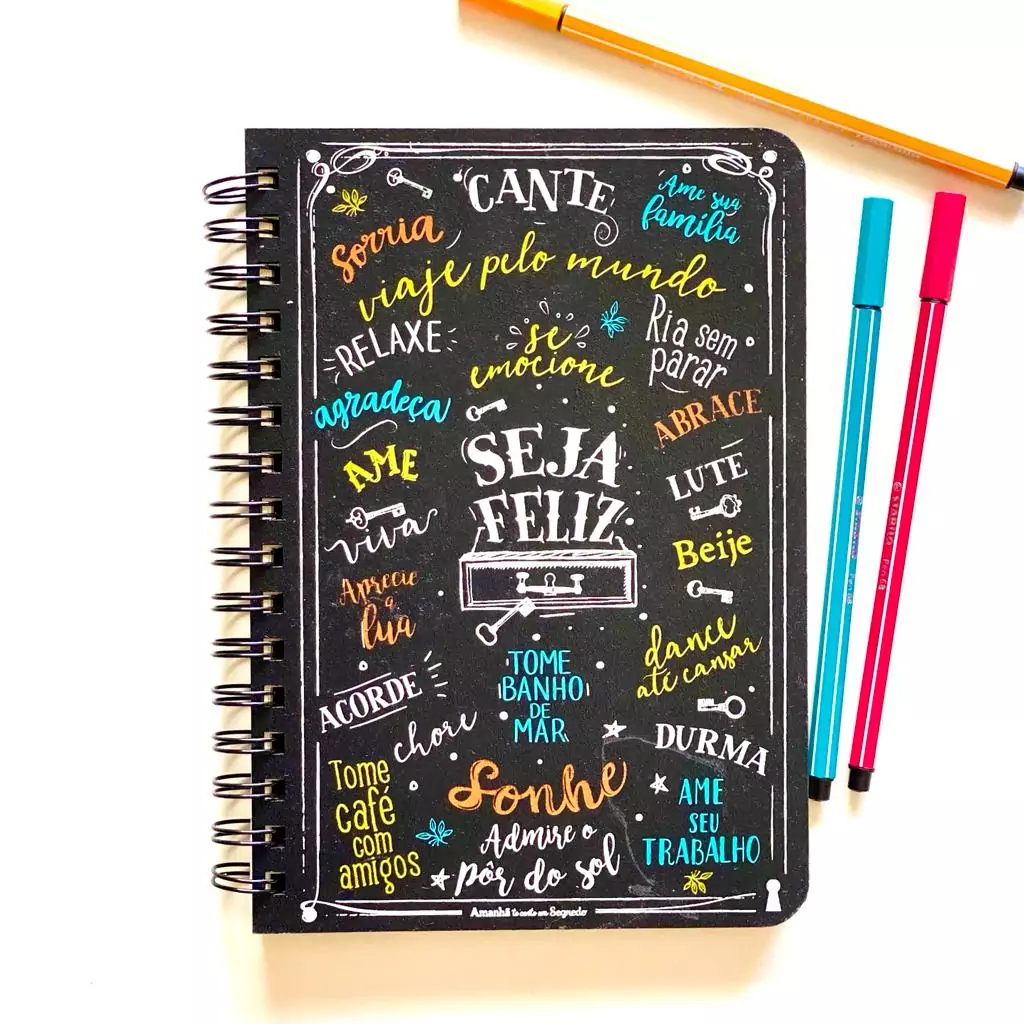 CANTE
Ame sua
família
sorria
viaje pelo mundo
RELAXE
se
emocione
Ria sem
parar
agradeça
ABRACE
AME
SEJA
FELIZ
LUTE
viva
Beije
Aprecie
a
lua
dance
até cansar
TOME
BANHO
DE
MAR
ACORDE
chore
DURMA
Tome
café
com
amigos
Sonhe
AME
SEU
TRABALHO
Admire o
pôr do sol
Amanhã te conto um Segredo
STABILO Pen 68
Pen 68